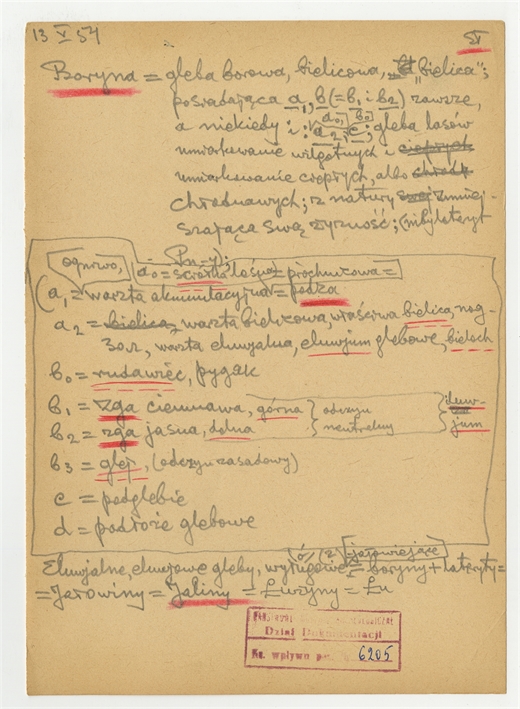 13 V 54
Boryna = gleba borowa, bielicowa, „bielica";
posiadająca a₁, b (= b₁ i b₂) zawsze,
a niekiedy i: a₀, a₂, b₀, c; gleba lasów
umiarkowanie wilgotnych i
umiarkowanie ciepłych, albo
chłodnawych; z natury zmniej-
szająca swą żyzność;
ogniwo, a₀ = ściółka leśna próchnicowa =
(a₁ = warstwa akumulacyjna = podza
a₂ = bielica, warstwa bielicowa, właściwa bielica,
warstwa eluwjalna, eluwjum glebowe, bieloch
b₀ = rudawiec,
b₁ = zga ciemnawa, górna } odczyn } iluw-
b₂ = zga jasna, dolna } neutralny } jum
b₃ = glej, (odczyn zasadowy)
c = podglebie
d = podłoże glebowe
Eluwjalne, eluwjowe gleby, (jałowiejące)
= boryny + lateryty =
= Jałowiny = Jaliny = Łużyny = Łu
Dział Dokumentacji
Nr. wpływu 6205